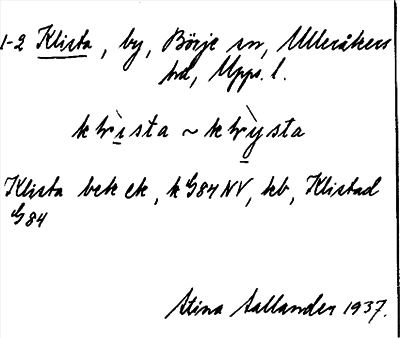 1-2 Klista, by, Börje sn, Ulleråkers
hd, Upps. l.
Klista bek ek, k G84 NV, hb, Klistad
G84
Stina Sallander 1937.